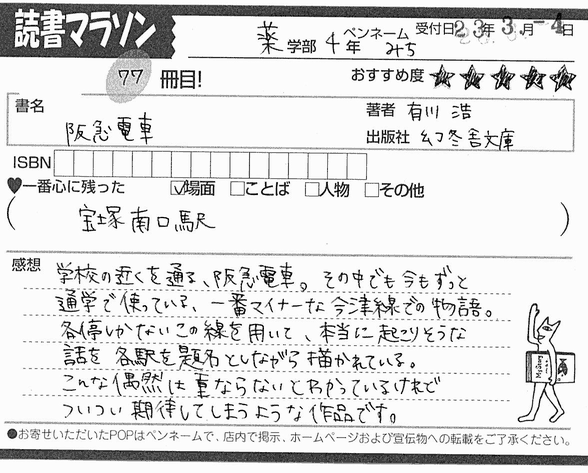 読書マラソン
薬 学部 4 年 ペンネーム みち 受付日 23年 3月 -4日
77 冊目! おすすめ度 ★★★★★
書名 阪急電車
著者 有川 浩
出版社 幻冬舎文庫
ISBN
♥一番心に残った ☑場面 □ことば □人物 □その他
( 宝塚南口駅 )
感想
学校の近くを通る、阪急電車。その中でも今もずっと
通学で使っている、一番マイナーな今津線での物語。
各停しかないこの線を用いて、本当に起こりそうな
話を各駅を題名としながら描かれている。
こんな偶然は重ならないとわかっているけれど
ついつい期待してしまうような作品です。
●お寄せいただいたPOPはペンネームで、店内で掲示、ホームページおよび宣伝物への転載をご了承ください。